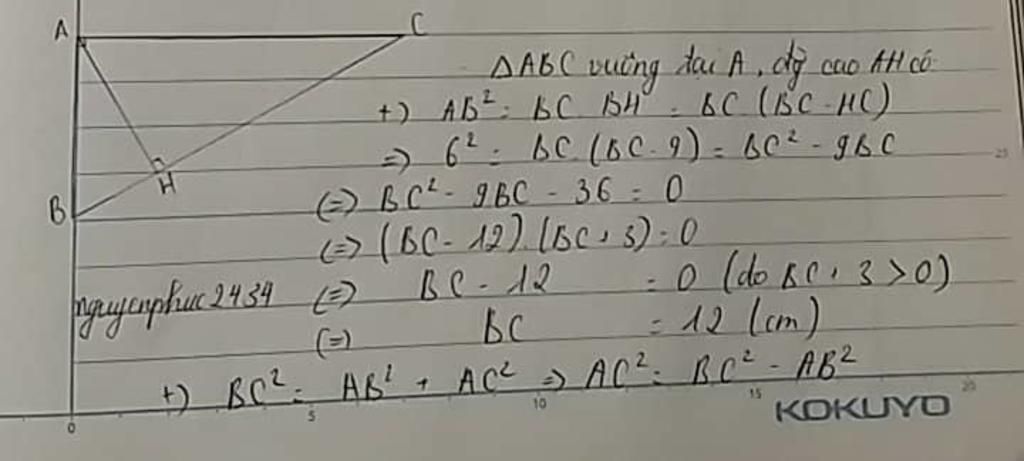 A
C
B
H
ΔABC vuông tại A, đg cao AH có
+) AB² = BC BH = BC (BC - HC)
=> 6² = BC (BC - 9) = BC² - 9BC
(=> BC² - 9BC - 36 = 0
(=> (BC - 12) (BC + 3) = 0
(=> BC - 12 = 0 (do BC + 3 > 0)
nguyenphuc2434
(=> BC = 12 (cm)
+) BC² = AB² + AC² => AC² = BC² - AB²
0 5 10 15 20
25
KOKUYO